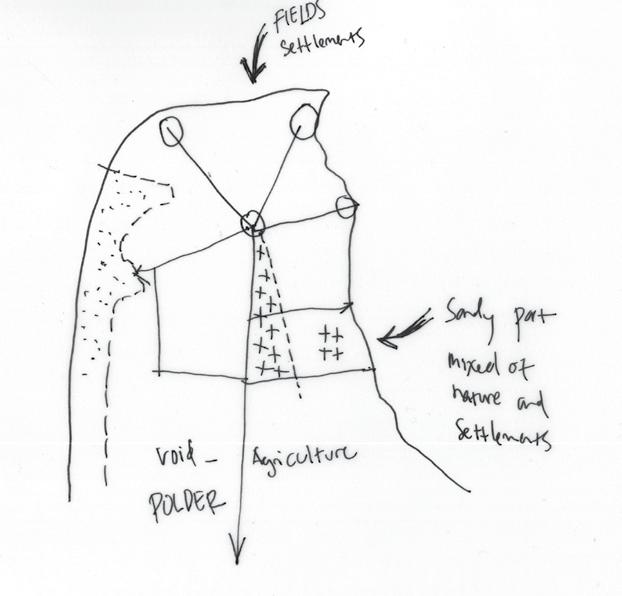 FIELDS
Settlements
Sandy part
mixed of
nature and
Settlements
void - Agriculture
POLDER